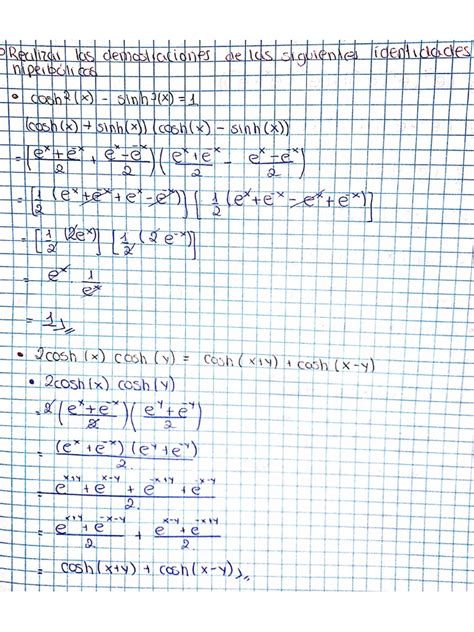 Realizar las demostraciones de las siguientes identidades
hiperbólicas
• cosh²(x) - sinh²(x) = 1
(cosh(x) + sinh(x)) (cosh(x) - sinh(x))
= ((e^x + e^-x)/2 + (e^x - e^-x)/2) ((e^x + e^-x)/2 - (e^x - e^-x)/2)
= [1/2 (e^x + e^-x + e^x - e^-x)] [1/2 (e^x + e^-x - e^x + e^-x)]
= [1/2 (2e^x)] [1/2 (2e^-x)]
= e^x · 1/e^x
= 1
• 2cosh(x) cosh(y) = cosh(x+y) + cosh(x-y)
• 2cosh(x) cosh(y)
= 2((e^x + e^-x)/2) ((e^y + e^-y)/2)
= (e^x + e^-x)(e^y + e^-y)/2
= (e^x+y + e^x-y + e^-x+y + e^-x-y)/2
= (e^x+y + e^-x-y)/2 + (e^x-y + e^-x+y)/2
= cosh(x+y) + cosh(x-y)